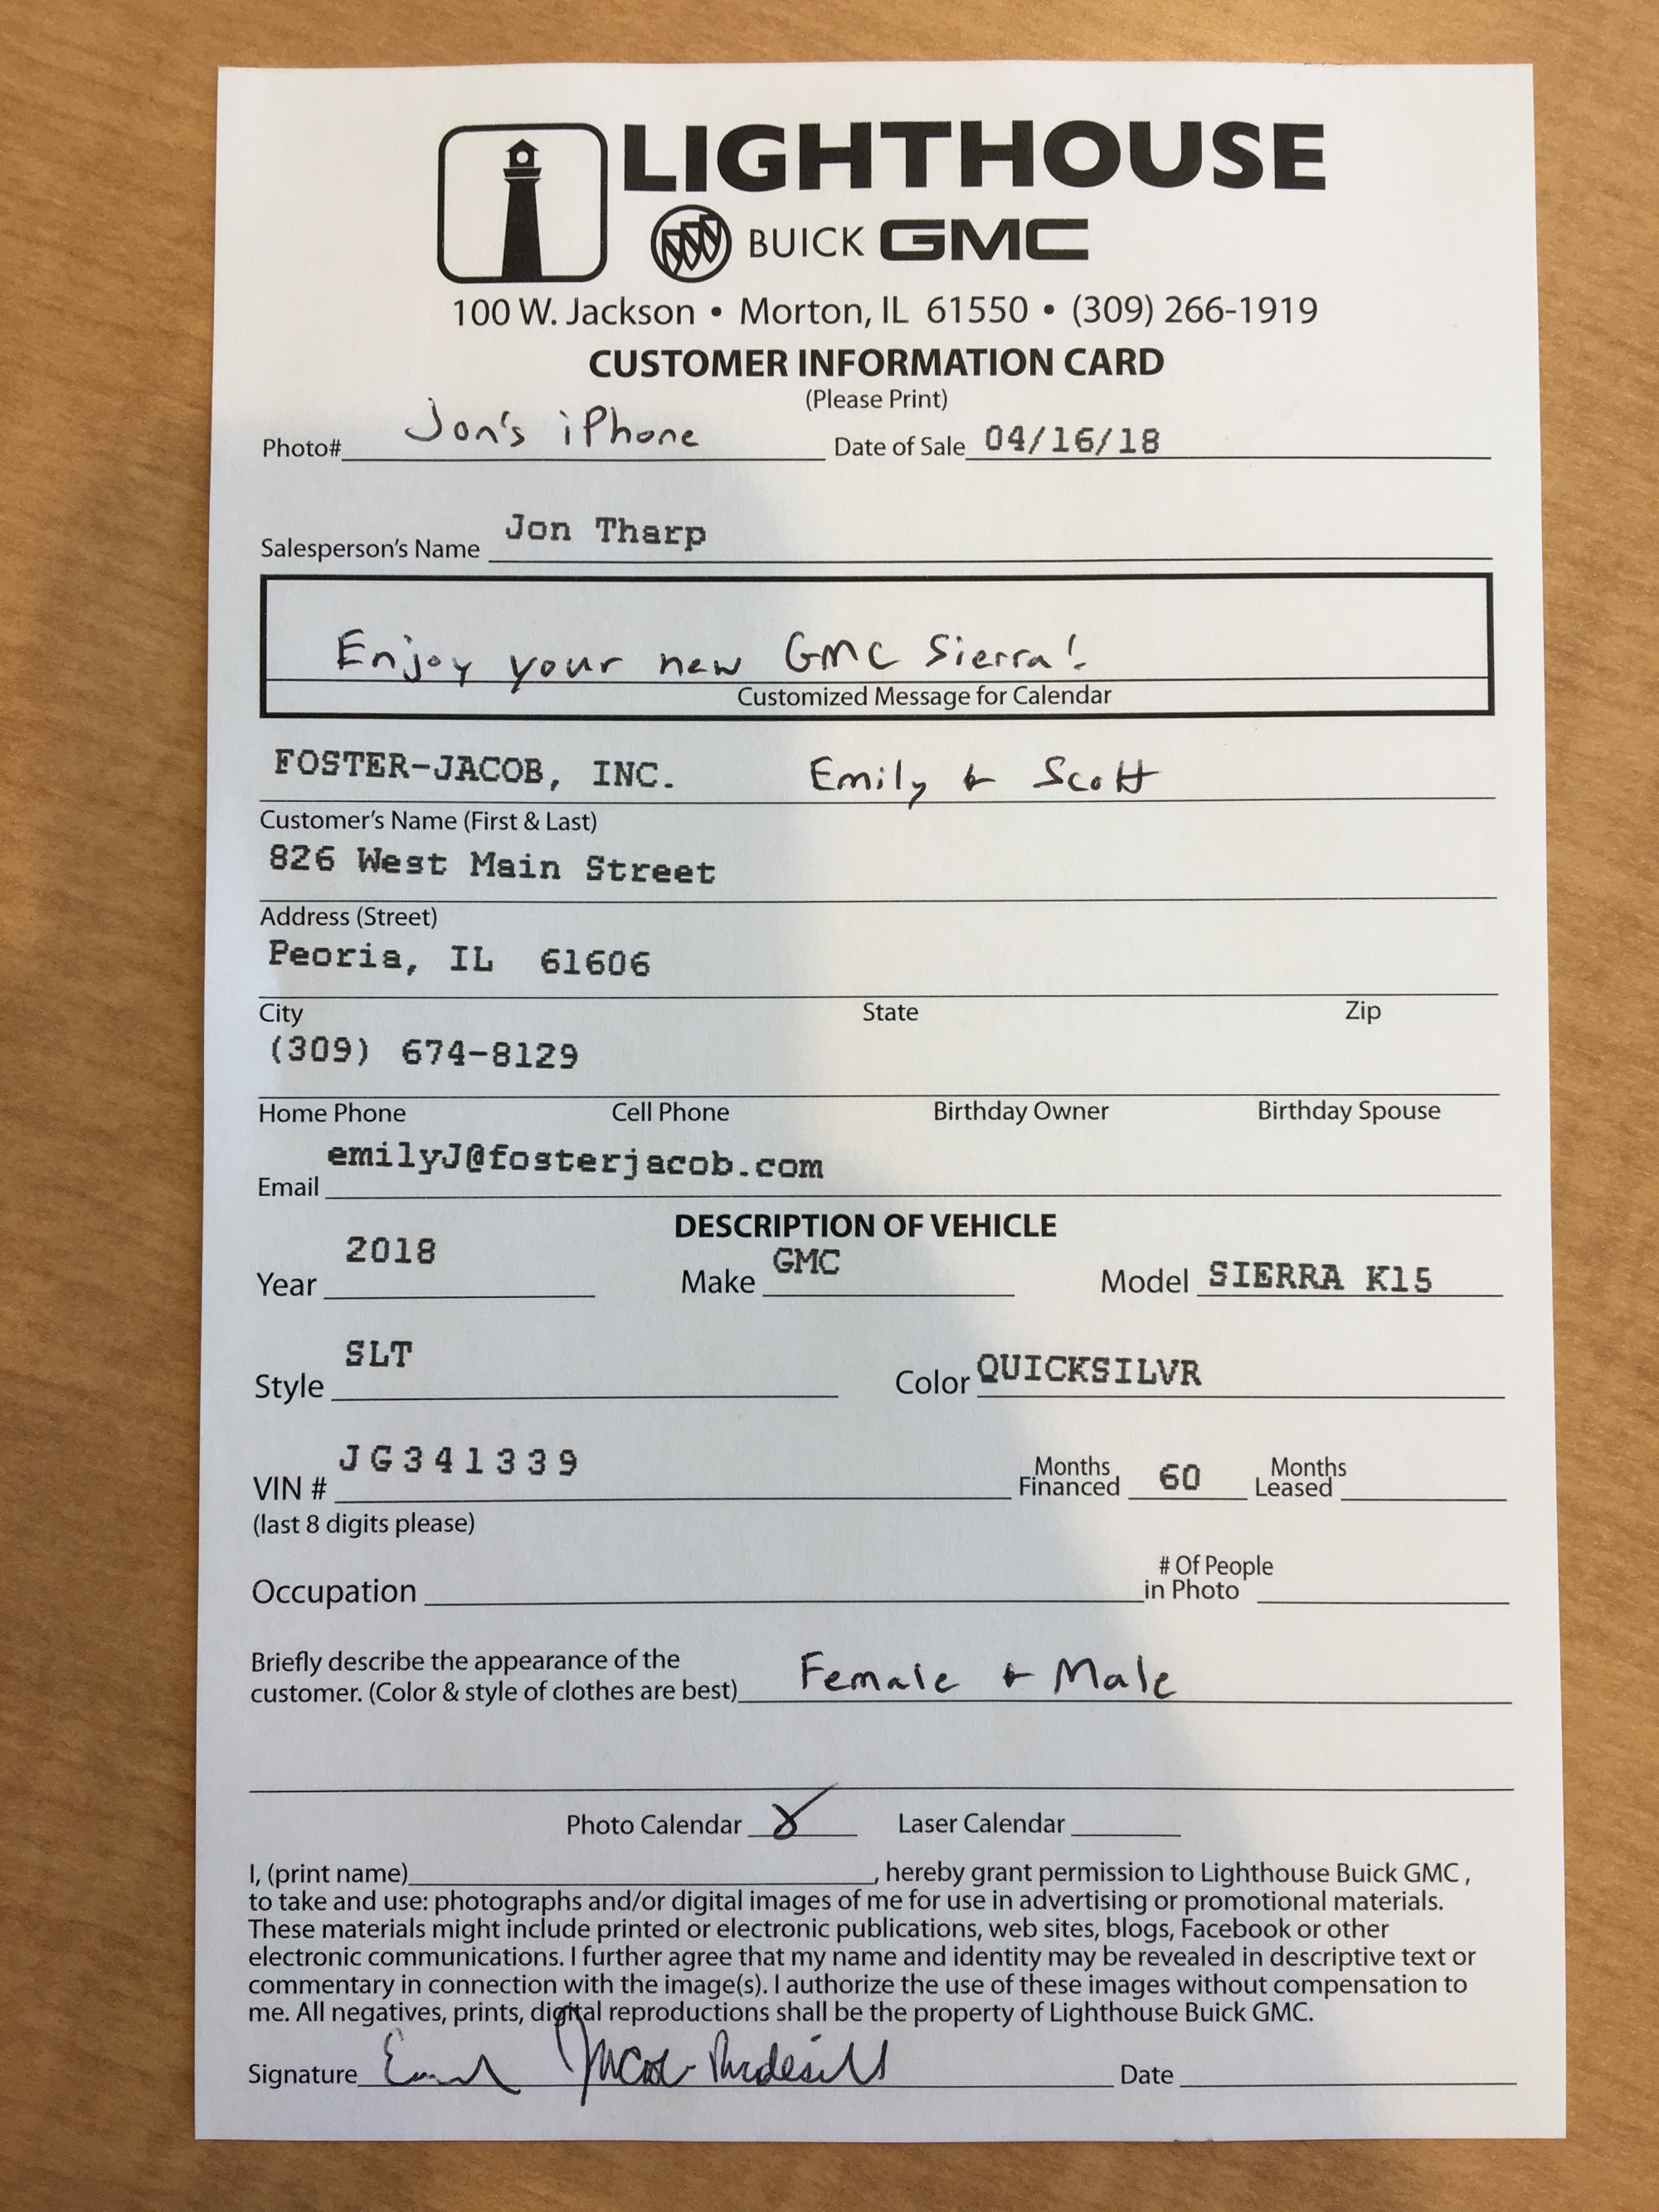 LIGHTHOUSE
BUICK GMC
100 W. Jackson • Morton, IL 61550 • (309) 266-1919
CUSTOMER INFORMATION CARD
(Please Print)
Photo# Jon's iPhone Date of Sale 04/16/18
Salesperson's Name Jon Tharp
Enjoy your new GMC Sierra!
Customized Message for Calendar
FOSTER-JACOB, INC. Emily & Scott
Customer's Name (First & Last)
826 West Main Street
Address (Street)
Peoria, IL 61606
City State Zip
(309) 674-8129
Home Phone Cell Phone Birthday Owner Birthday Spouse
Email emilyJ@fosterjacob.com
DESCRIPTION OF VEHICLE
Year 2018 Make GMC Model SIERRA K15
Style SLT Color QUICKSILVR
VIN # JG341339 Months Financed 60 Months Leased
(last 8 digits please)
Occupation # Of People in Photo
Briefly describe the appearance of the
customer. (Color & style of clothes are best) Female & Male
Photo Calendar Laser Calendar
I, (print name) , hereby grant permission to Lighthouse Buick GMC ,
to take and use: photographs and/or digital images of me for use in advertising or promotional materials.
These materials might include printed or electronic publications, web sites, blogs, Facebook or other
electronic communications. I further agree that my name and identity may be revealed in descriptive text or
commentary in connection with the image(s). I authorize the use of these images without compensation to
me. All negatives, prints, digital reproductions shall be the property of Lighthouse Buick GMC.
Signature Date